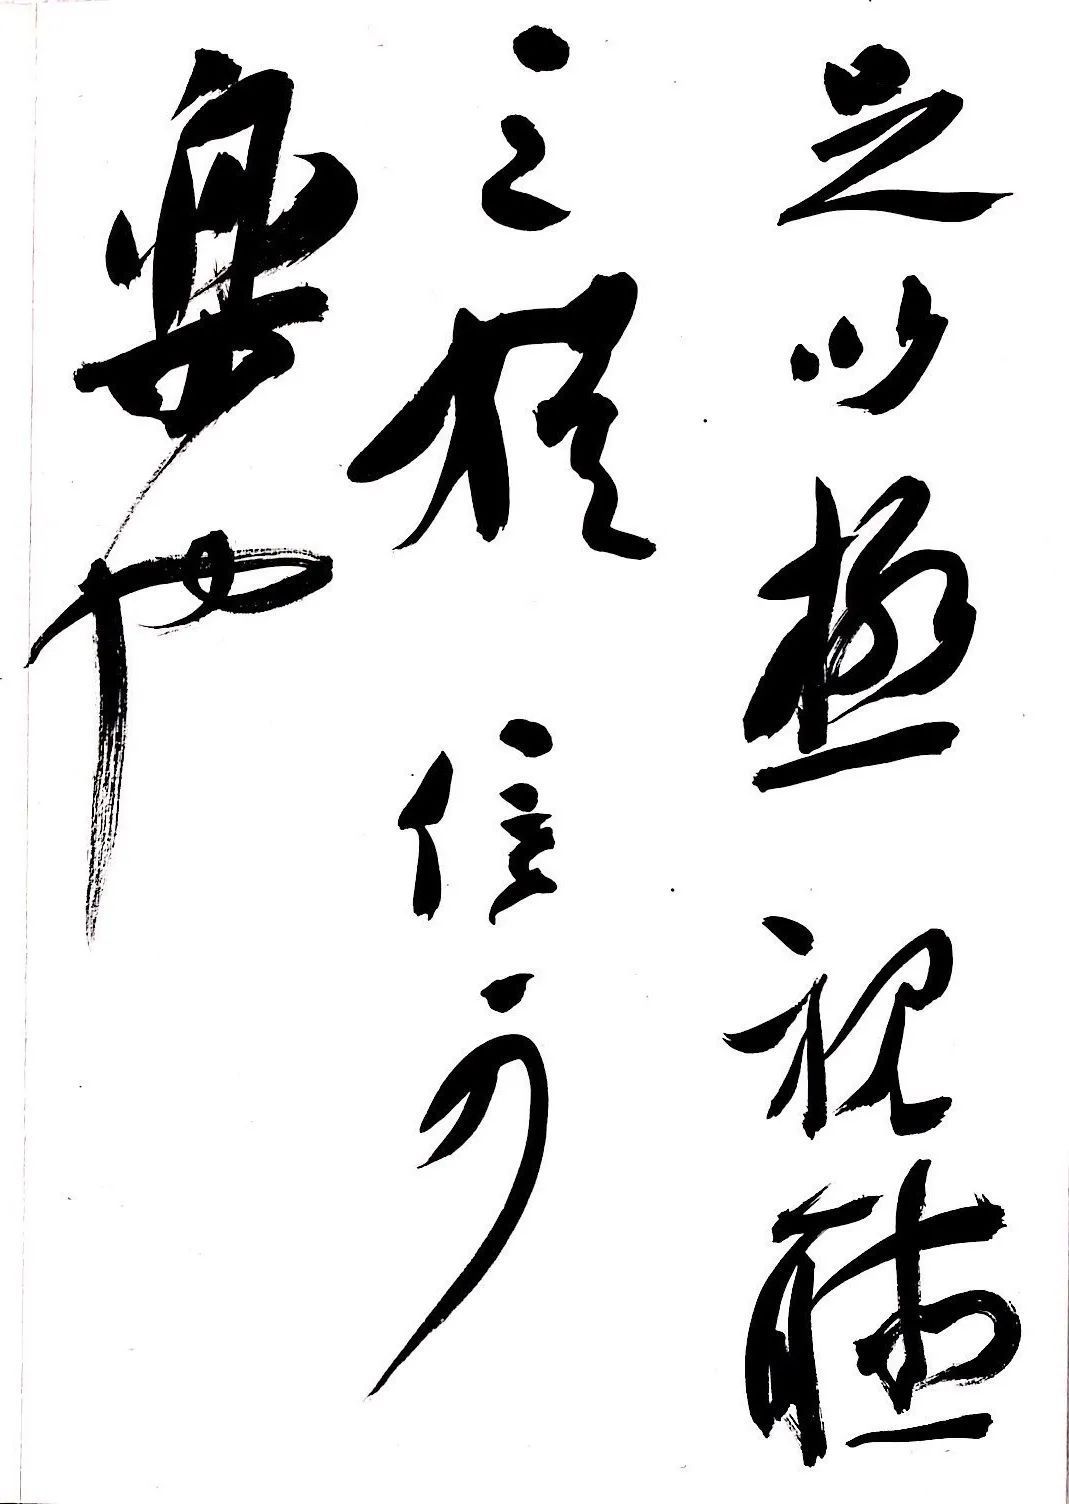 足以極視聽
之娛信可
樂也